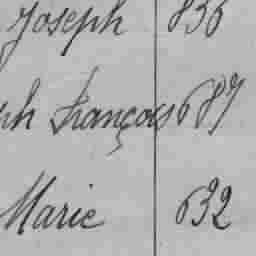 Joseph 836
ph François 687
Marie 632